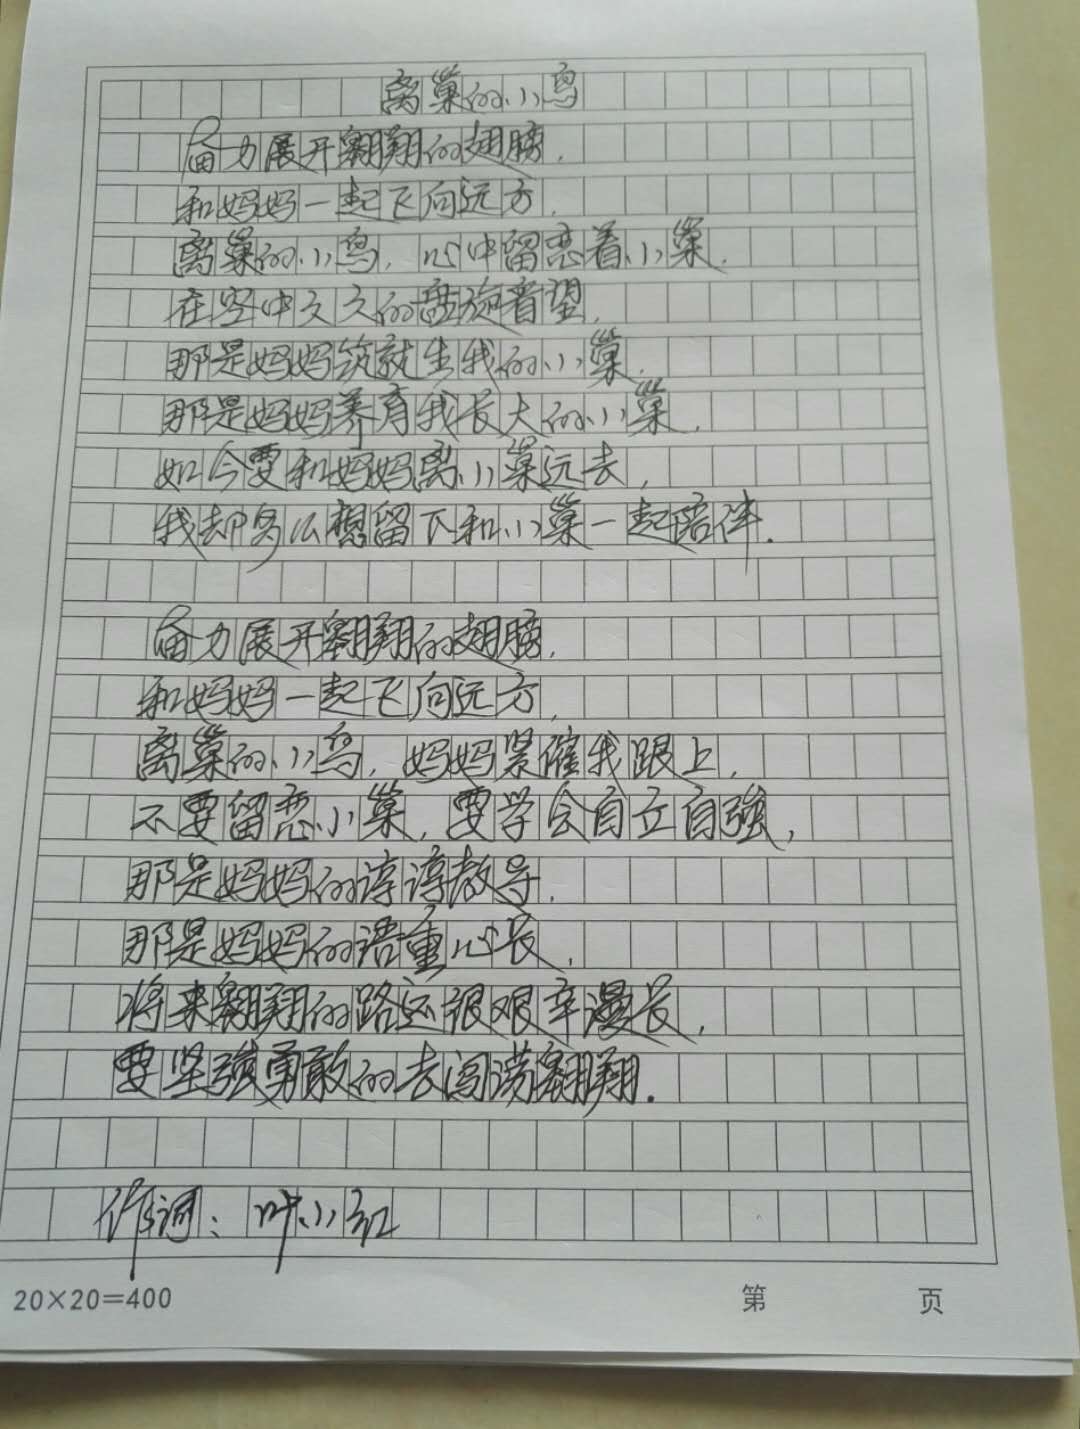 离巢的小鸟
奋力展开翱翔的翅膀，
和妈妈一起飞向远方，
离巢的小鸟，心中留恋着小巢，
在空中久久的盘旋着望，
那是妈妈筑就生我的小巢，
那是妈妈养育我长大的小巢，
如今要和妈妈离小巢远去，
我却多么想留下和小巢一起陪伴．
奋力展开翱翔的翅膀，
和妈妈一起飞向远方，
离巢的小鸟，妈妈紧催我跟上，
不要留恋小巢，要学会自立自強，
那是妈妈的谆谆教导，
那是妈妈的语重心长，
将来翱翔的路还很艰辛漫长，
要坚強勇敢的去闯荡翱翔．
作词：叶小红
20×20=400
第 页